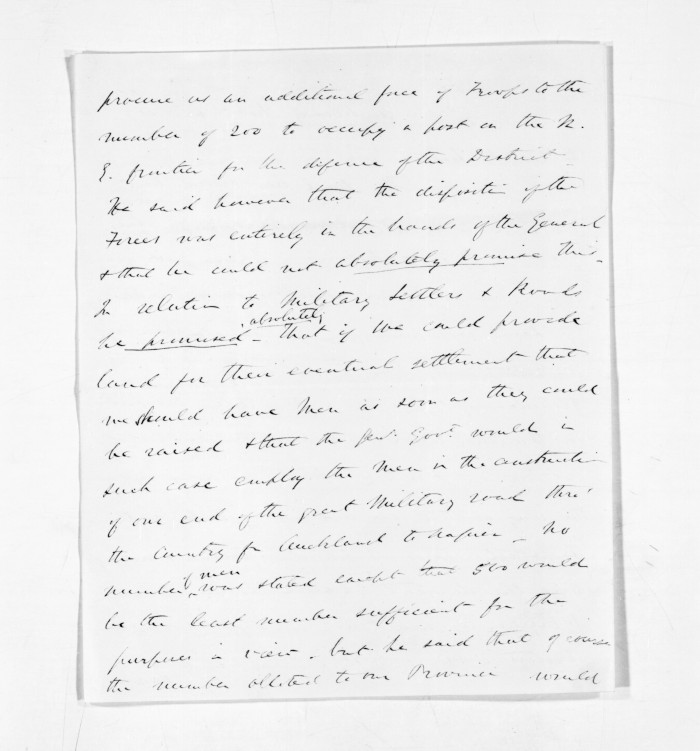 procure us an additional force of Troops to the
number of 200 to occupy a post on the N.
E. frontier for the defence of the District
He said however that the disposition of the
Forces was entirely in the hands of the General
& that he could not absolutely promise this.
In relation to Military Settlers & Roads
absolutely
he promised - that if we could provide
land for their eventual settlement that
we should have Men as soon as they could
be raised & that the Genl. Govt. would in
such case employ the Men in the construction
of one end of the great Military road thro'
the Country fm Auckland to Napier - No
of men
number was stated except that 500 would
be the least number sufficient for the
purposes in view - but he said that of course
the number alloted to our Province would